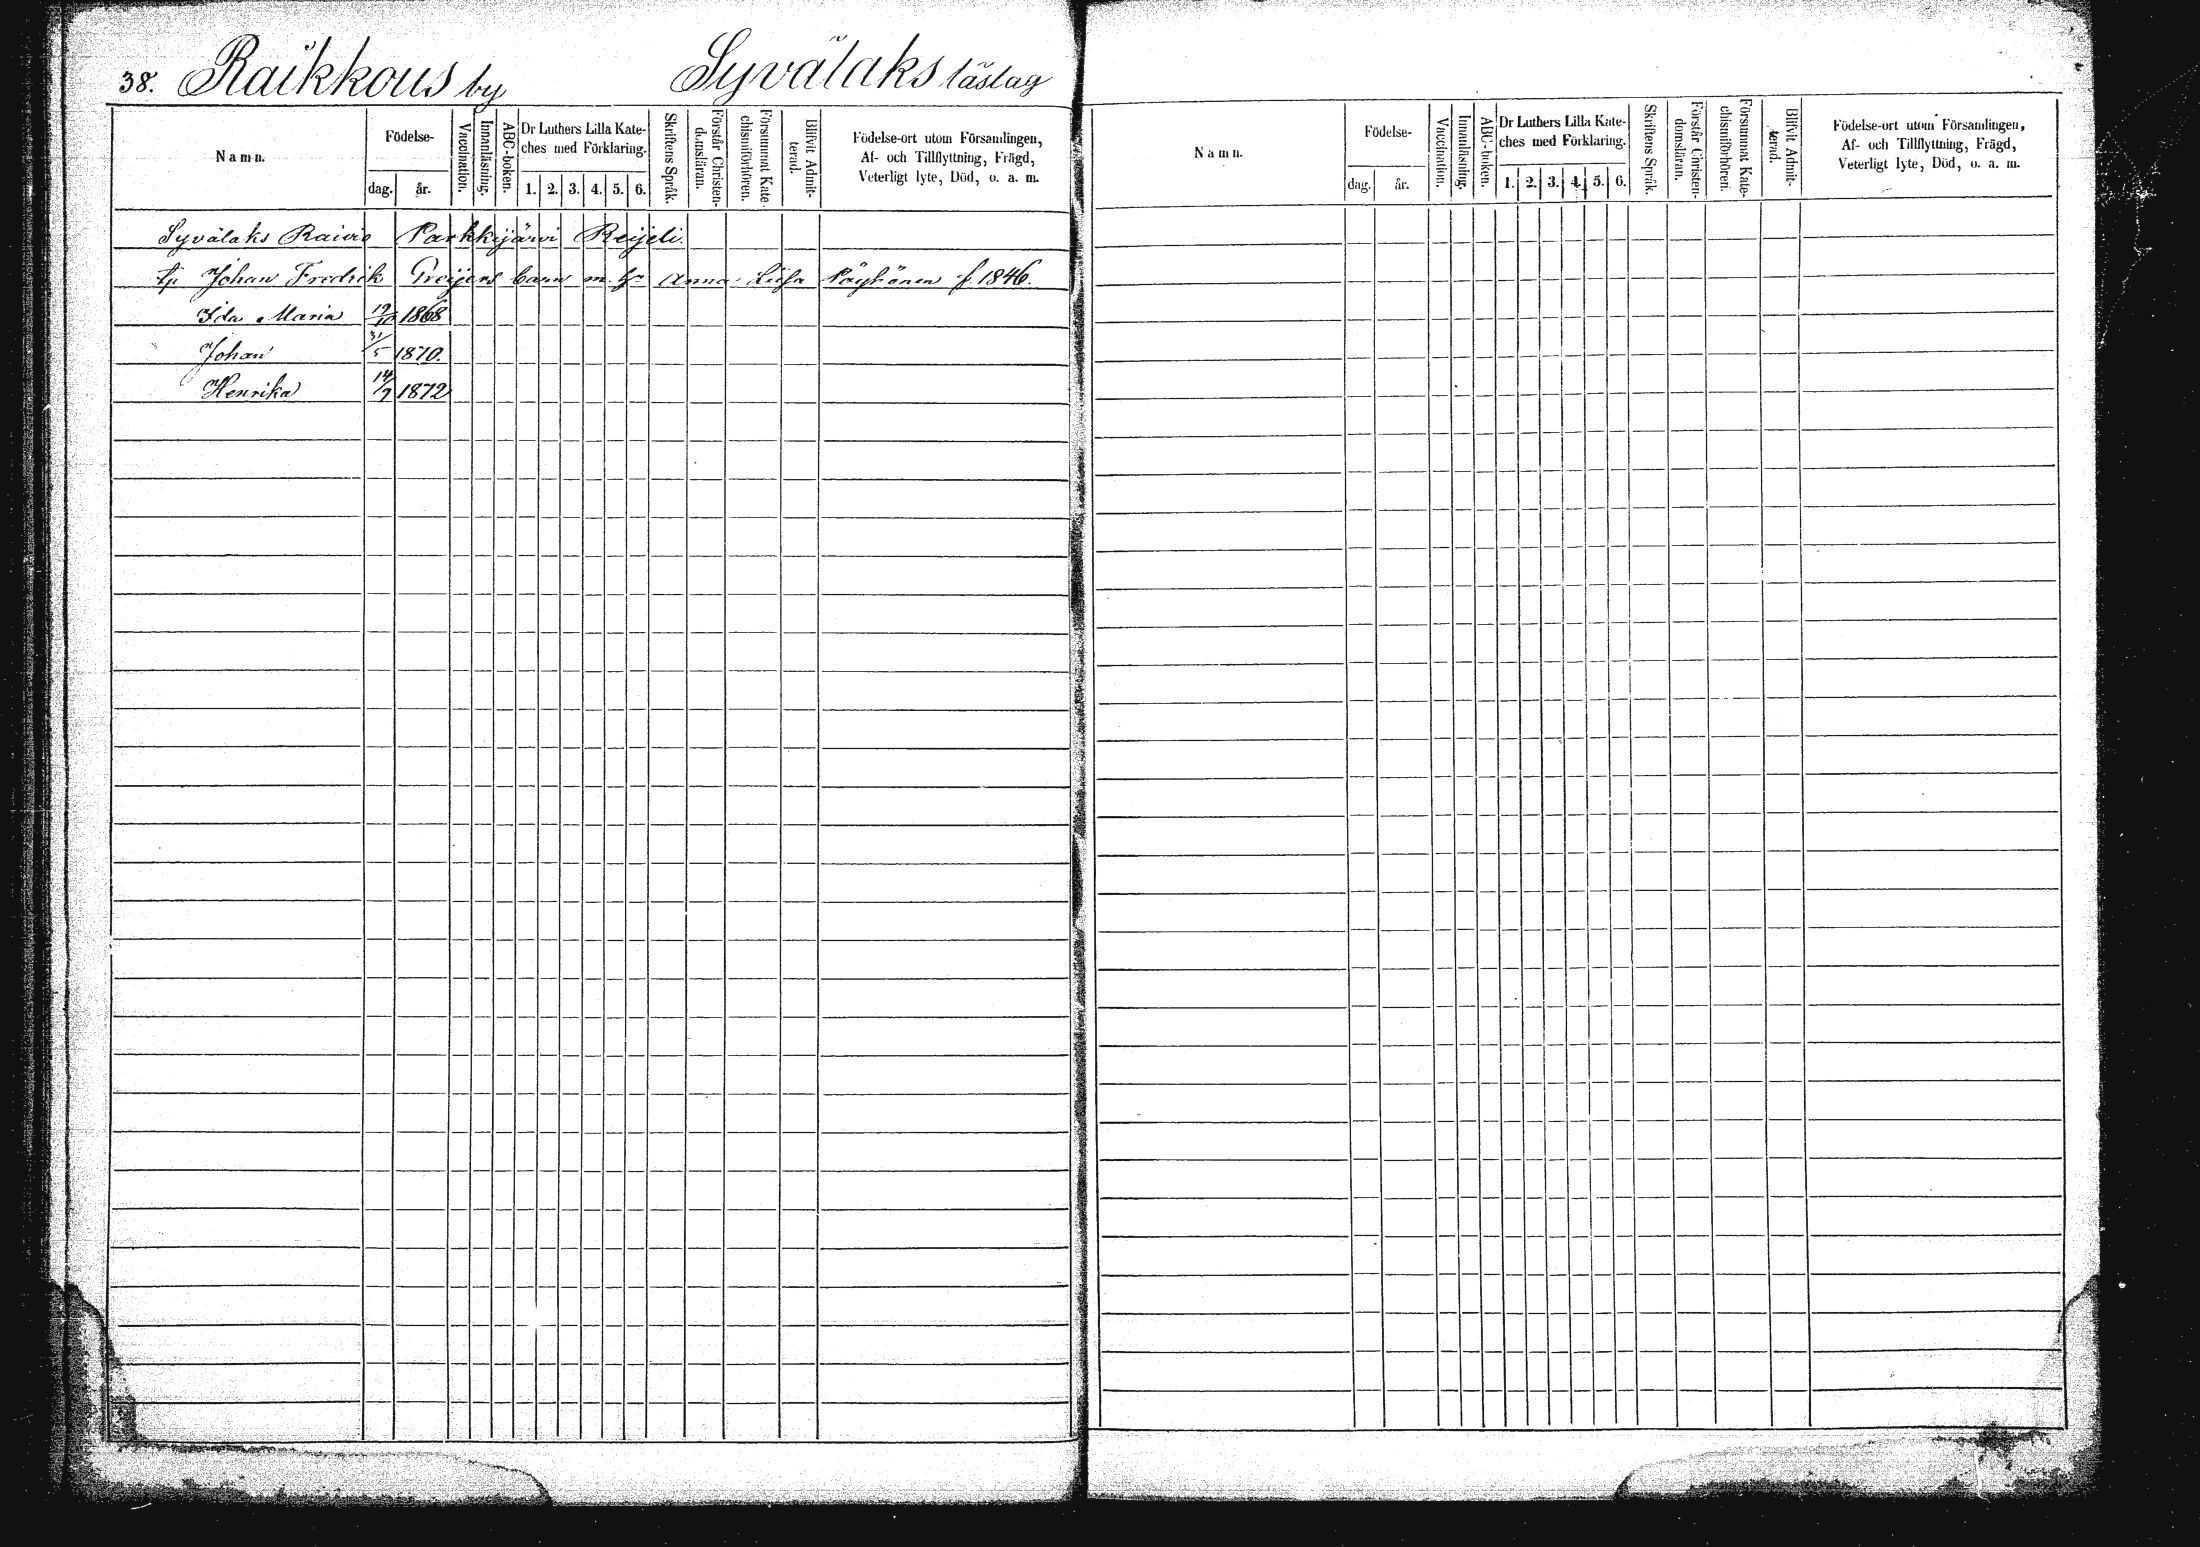 38. Raikkous by Syvälaks läslag
Namn. Födelse- dag. år. Vaccination. Innanläsning. ABC-boken. Dr Luthers Lilla Kateches med Förklaring. 1. 2. 3. 4. 5. 6. Skriftens Språk. Förstår Christendomsläran. Försummat Katechismiförhören. Blifvit Admitterad. Födelse-ort utom Församlingen, Af- och Tillflyttning, Frägd, Veterligt lyte, Död, o. a. m.
Syvälaks Raivio Parkkijärvi Reijeli.
Johan Fredrik Greijens barn m. Anna Liisa Pöyhönen f. 1846.
Ida Maria 19/10 1868
Johan 31/5 1870.
Henrika 14/9 1872
Namn. Födelse- dag. år. Vaccination. Innanläsning. ABC-boken. Dr Luthers Lilla Kateches med Förklaring. 1. 2. 3. 4. 5. 6. Skriftens Språk. Förstår Christendomsläran. Försummat Katechismiförhören. Blifvit Admitterad. Födelse-ort utom Församlingen, Af- och Tillflyttning, Frägd, Veterligt lyte, Död, o. a. m.